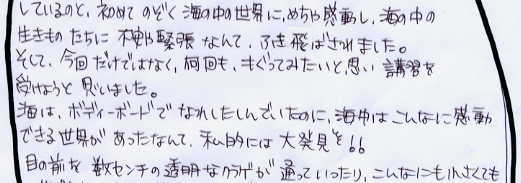 しているのと、初めて のぞく 海の中の世界に、めちゃ感動し、海の中の
生きもの たちに 不安や緊張 なんて、ふき飛ばされました。
そして、今回だけではなく、何回も、もぐってみたいと思い 講習を
受けようと 思いました。
海は、ボディーボードで なれしたしんでいたのに、海中は こんなに 感動
できる世界が あったなんて、私的には 大発見です!!
目の前を 数センチの透明なクラゲが 通っていったり、こんなにも小さくても